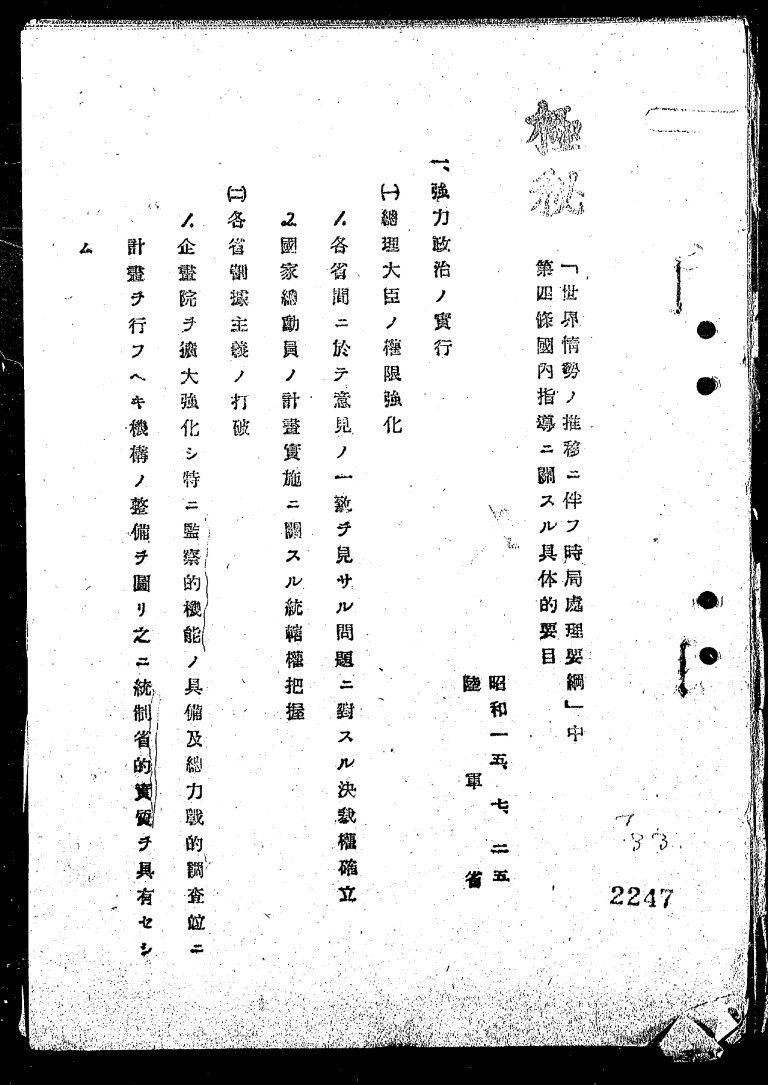 極秘
「世界情勢ノ推移ニ伴フ時局處理要綱」中
第四條國内指導ニ關スル具体的要目
昭和一五、七、二五
陸軍省
一、強力政治ノ實行
㈠總理大臣ノ權限強化
1.各省間ニ於テ意見ノ一致ヲ見サル問題ニ對スル決裁權確立
2.國家總動員ノ計畫實施ニ關スル統轄權把握
㈡各省割據主義ノ打破
1.企畫院ヲ擴大強化シ特ニ監察的機能ノ具備及總力戰的調査竝ニ
計畫ヲ行フヘキ機構ノ整備ヲ圖リ之ニ統制省的實質ヲ具有セシ
ム
2247